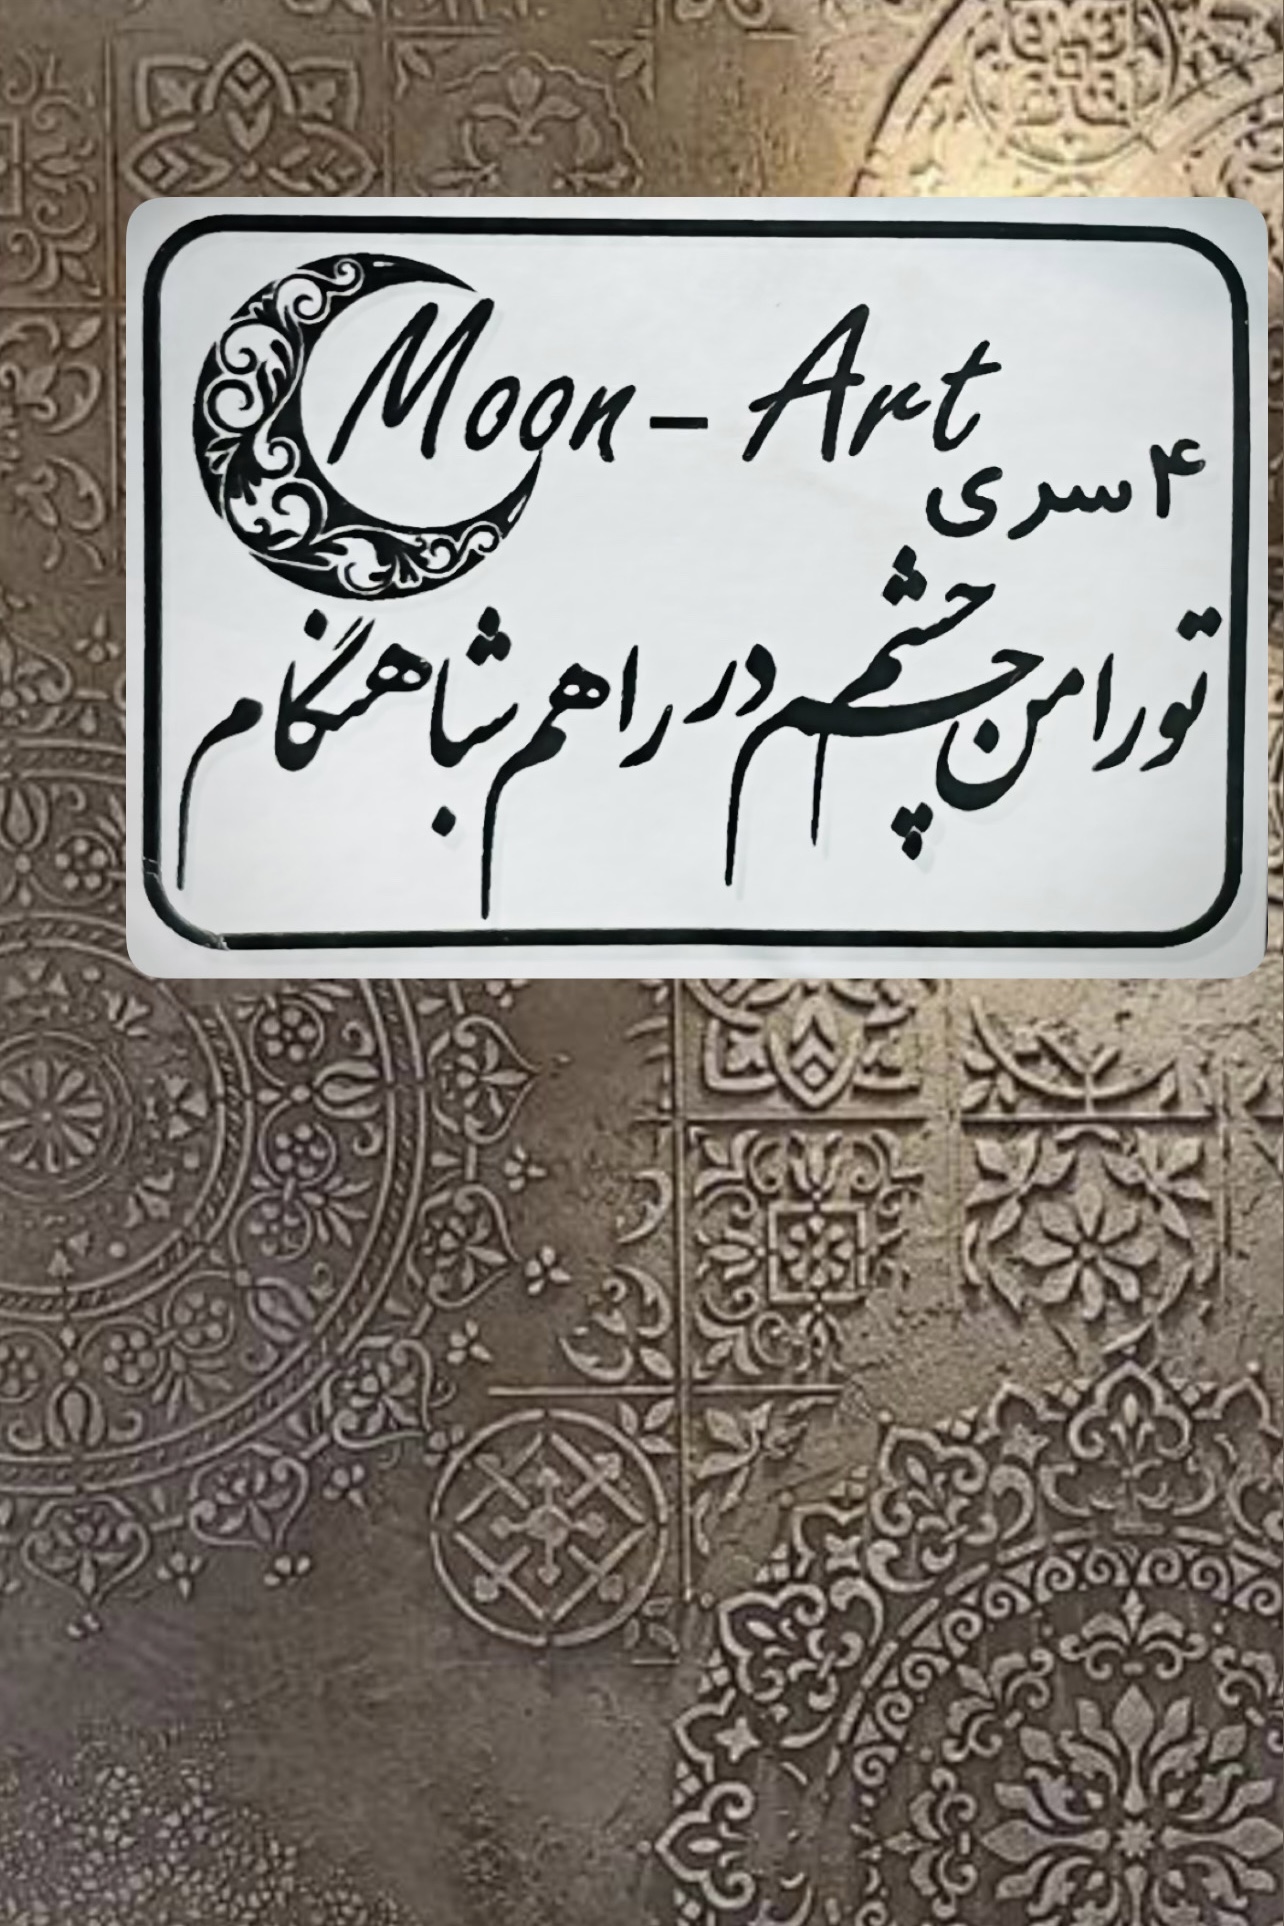 Moon - Art
۴ سری
تو را من چشم چشم در راهم شباهنگام